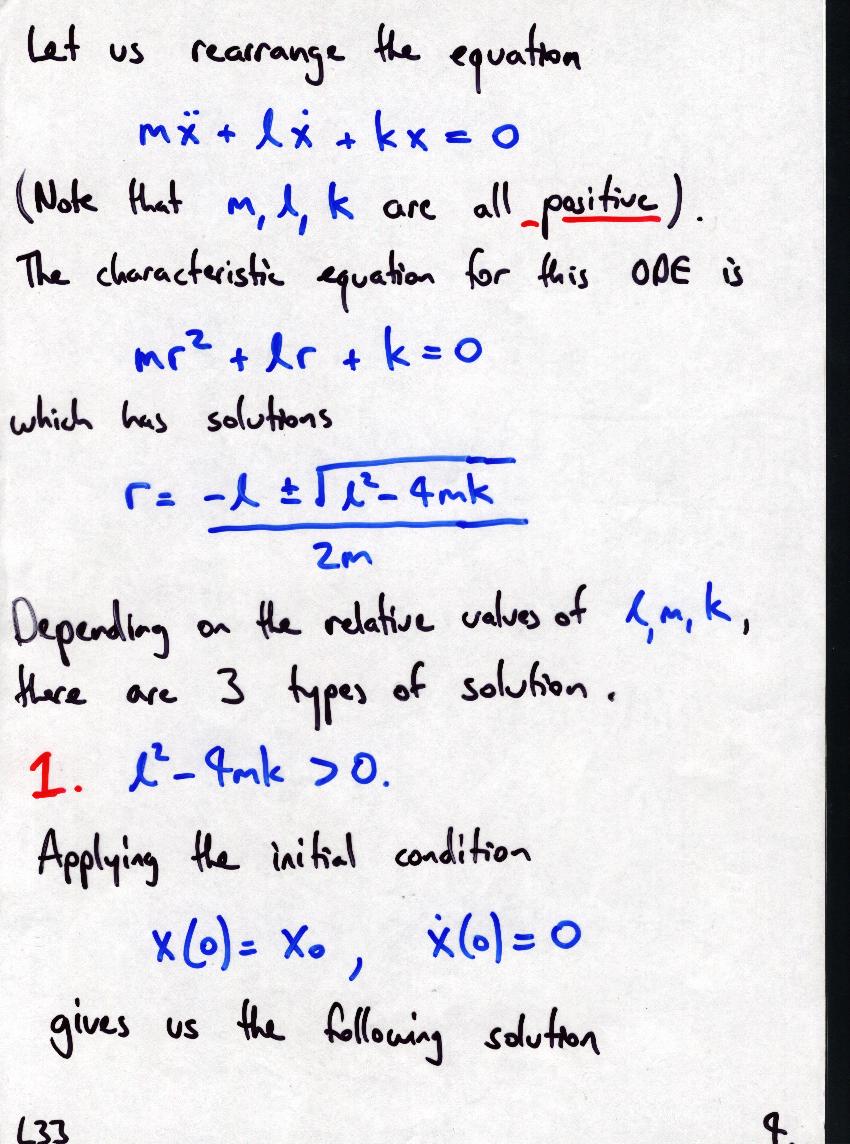 Let us rearrange the equation
mẍ + lẋ + kx = 0
(Note that m, l, k are all positive).
The characteristic equation for this ODE is
mr² + lr + k = 0
which has solutions
r = -l ± √(l² - 4mk)
2m
Depending on the relative values of l, m, k,
there are 3 types of solution.
1. l² - 4mk > 0.
Applying the initial condition
x(0) = x₀, ẋ(0) = 0
gives us the following solution
L33 4